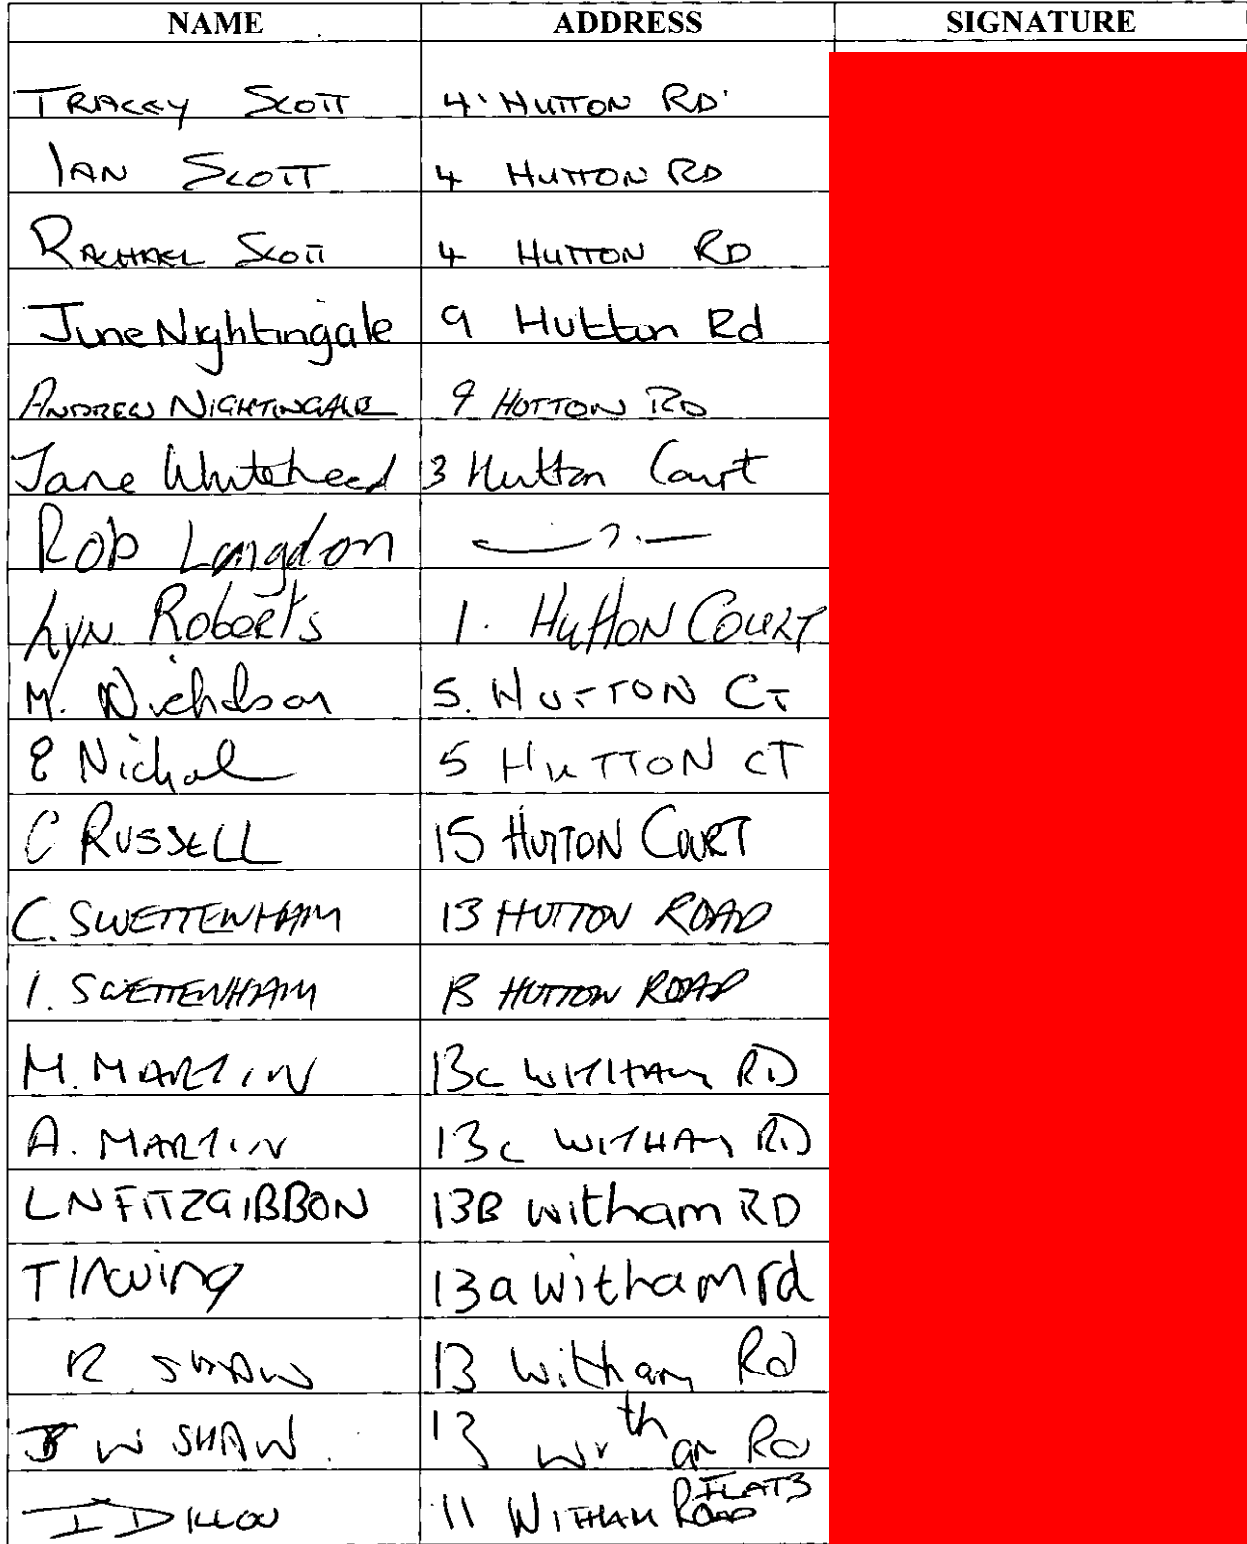 NAME ADDRESS SIGNATURE
TRACEY SCOTT 4 HUTTON RD
IAN SCOTT 4 HUTTON RD
RACHAEL SCOTT 4 HUTTON RD
June Nightingale 9 Hutton Rd
ANDREW NIGHTINGALE 9 HUTTON RD
Jane Whitehead 3 Hutton Court
Rob Langdon — ? —
Lyn Roberts 1. HUTTON COURT
M. Nicholson 5. HUTTON CT
E Nichol 5 HUTTON CT
C RUSSELL 15 HUTTON COURT
C. SWETTENHAM 13 HUTTON ROAD
I. SWETTENHAM 13 HUTTON ROAD
M. MARTIN 13c WITHAM RD
A. MARTIN 13c WITHAM RD
LN FITZGIBBON 13B Witham RD
T Irwing 13a Witham rd
R SHAW 13 Witham Rd
W SHAW. 13 Witham Rd
I DILLON 11 WITHAM ROAD FLAT 3